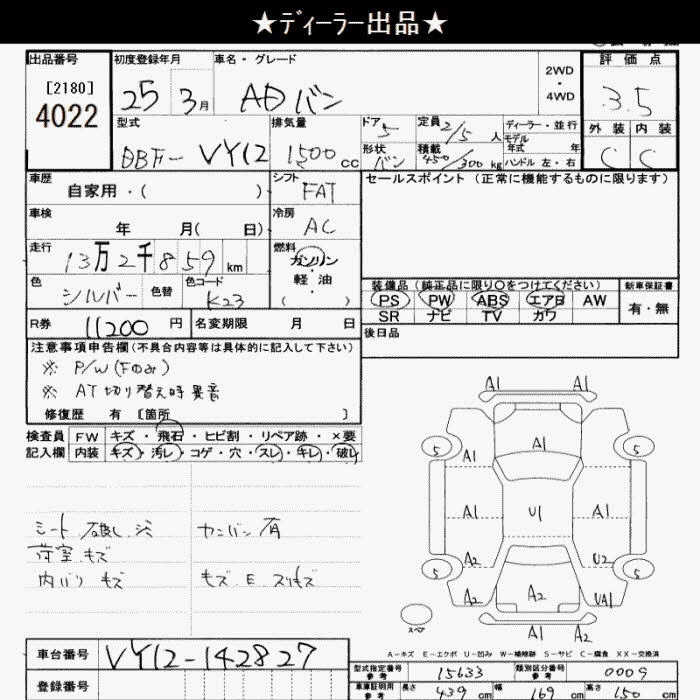 ★ディーラー出品★
出品番号
[2180]
4022
初度登録年月
25 3月
車名・グレード
AD バン
2WD
・
4WD
評価点
3.5
外装 内装
C C
型式
DBF- VY12
排気量
1500cc
ドア
5
形状
バン
定員
2/5 人
積載
450/300kg
ディーラー・並行
モデル
年式 年
ハンドル 左・右
車歴
自家用・( )
シフト
FAT
セールスポイント(正常に機能するものに限ります)
車検
年 月( 日)
冷房
AC
走行
13万2千859km
燃料
ガソリン
・
軽油
( )
色
シルバー
色替
色コード
K23
装備品(純正品に限り○をつけてください)
PS PW ABS エアB AW
SR ナビ TV カワ
新車保証書
有・無
R券 11200円
名変期限 月 日
後日品
注意事項申告欄(不具合内容等は具体的に記入して下さい)
※ P/W(Fのみ)
※ AT切り替え時異音
修復歴 有 [箇所 ]
検査員
記入欄
FW キズ・飛石・ヒビ割・リペア跡・×要
内装 キズ・汚レ・コゲ・穴・スレ・キレ・破レ
シート 破レ
荷室 キズ
内バリ キズ
カンバン 有
キズ E スリキズ
A1 A1
5 A1 A1 A1 5
A1 U1 A1
A2 U2
5 A2 5
A2 UA1
A1 A2
スペア
A-キズ E-エクボ U-凹み W-補修跡 S-サビ C-腐食 XX-交換済
車台番号
VY12-142827
登録番号
型式指定番号
参考
15633
類別区分番号
参考
0009
車庫証明用
参考
長さ 439 cm 幅 169 cm 高さ 150 cm